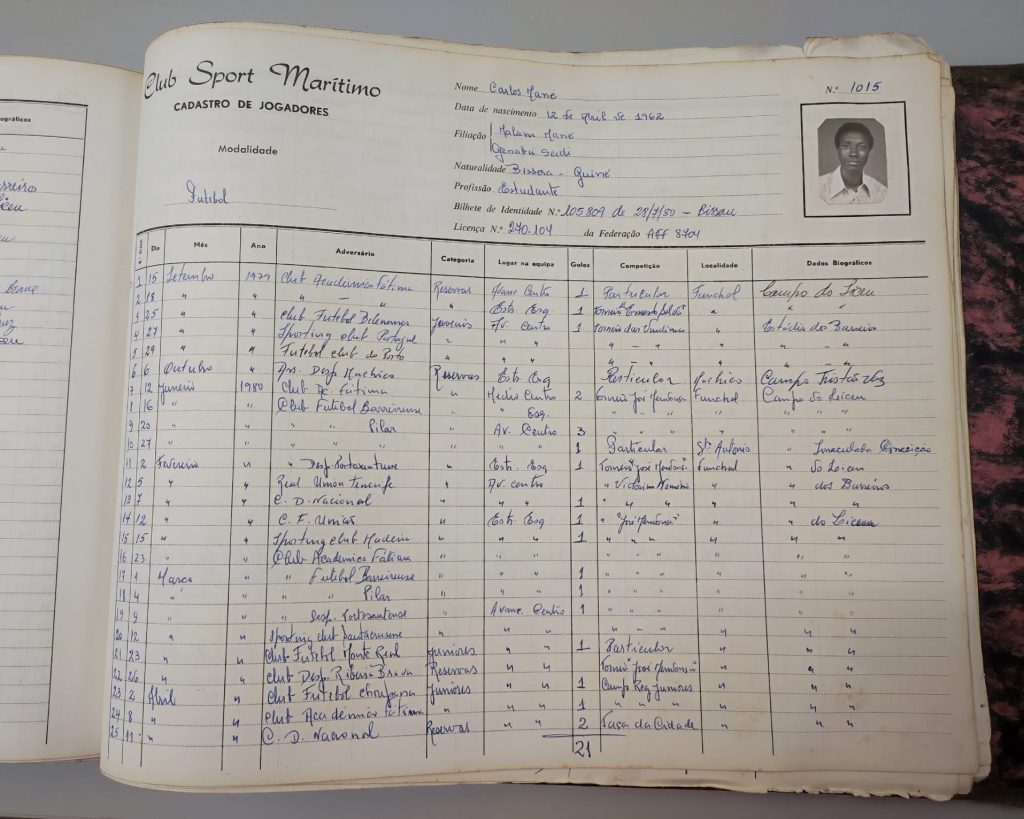 Club Sport Marítimo
CADASTRO DE JOGADORES
Modalidade
Futebol
Nome Carlos Mane
Data de nascimento 12 de Abril de 1962
Filiação Malam Mane
Naturalidade Bissora - Guiné
Profissão Estudante
Bilhete de Identidade N.º 105.809 de 28/7/80 - Bissau
Licença N.º 270.104 da Federação AFF 8704
N.º 1015
Dia Mês Ano Adversário Categoria Lugar na equipa Golos Competição Localidade Dados Biográficos
1 15 Setembro 1979 Club Académico Fátima Reservas Avanc Centro 1 Particular Funchal Campo do Liceu
2 18 " " " - " " Estr. Esq. 1 Torneio " "
3 25 " " Club Futebol Belenenses Juvenis Av. Centro 1 Torneio das Vindimas " Estádio dos Barreiros
4 27 " " Sporting Club Portugal " " " " - " " "
5 29 " " Futebol Club do Porto " " " " - " " "
6 6 Outubro " Ass. Desp. Machico Reservas Estr. Esq Particular Machico Campo Tristão Vaz
7 12 Janeiro 1980 Club Ac Fátima " Medio Centro 2 Torneio José Mendonça Funchal Campo do Liceu
8 16 " " Club Futebol Barreirense " " Esq. " " " " "
9 20 " " " " Pilar " Av. Centro 3 " " " " "
10 27 " " " " " " " " 1 Particular Stº Antonio " Imaculada Conceição
11 2 Fevereiro " " Desp. Portosantense " Estr. Esq 1 Torneio "José Mendonça" Funchal " do Liceu
12 5 " " Real Union Tenerife " Av. centro " " dos Barreiros
13 7 " " C. D. Nacional " " " 1 " " " " "
14 12 " " C. F. União " Estr. Esq 1 " "José Mendonça" " " do Liceu
15 15 " " Sporting Club Madeira " " " 1 " " " " " "
16 23 " " Club Academico Fátima " " " " " " " " "
17 1 Março " " Futebol Barreirense " " " 1 " " " " " "
18 4 " " " " Pilar " " " 1 " " " " " "
19 9 " " " Desp. Portosantense " Avanc. Centro 1 " " " " " "
20 12 " " Sporting Club Santacruzense " " " " - " " " "
21 23 " " Club Futebol Monte Real Juniores " " 1 Particular " " "
22 26 " " Club Desp. Ribeira Brava Reservas " " Torneio "José Mendonça" " " "
23 2 Abril " Club Futebol Choupana Juniores " " 1 Camp Reg Juniores " " "
24 8 " " Club Académico Fátima " " " 1 " " " " " "
25 11 " " C. D. Nacional Reservas " " 2 Taça da Cidade " " "
21